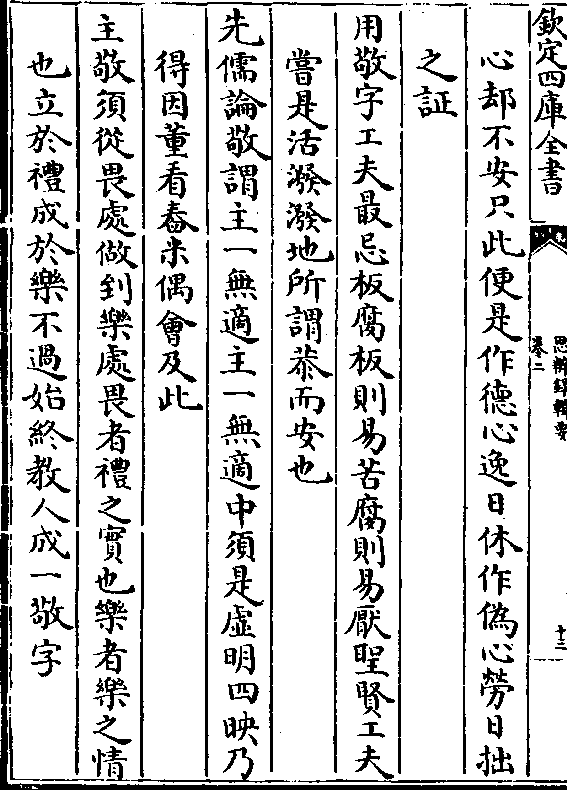 欽定四庫全書
思辨録輯要
卷二
十三
心却不安只此便是作德心逸日休作偽心勞日拙
之証
用敬字工夫最忌板腐板則易苦腐則易厭聖賢工夫
嘗是活潑潑地所謂恭而安也
先儒論敬謂主一無適主一無適中須是虛明四映乃
得因董看舂米偶會及此
主敬須從畏處做到樂處畏者禮之實也樂者樂之情
也立於禮成於樂不過始終教人成一敬字